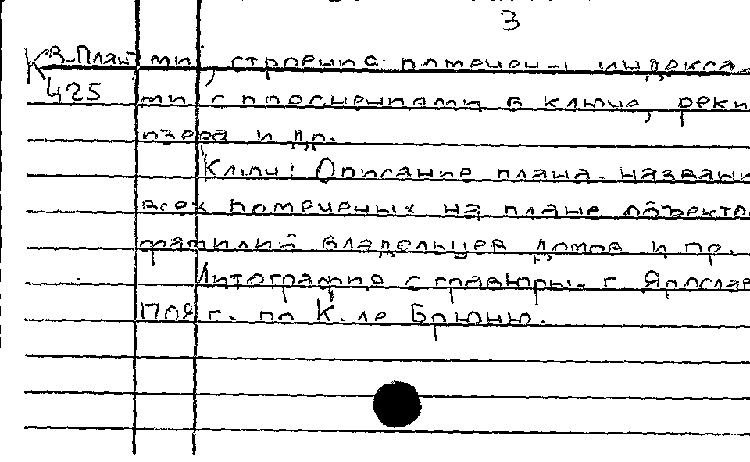 3
К 3-Плай ми, строения помечены индекса-
425 ми с пояснениями в ключе, реки
озера и др.
Ключ: Описание плана. названи
всех помеченых на плане объекто
фамилий владельцев домов и пр.
Литография с гравюры. г. Ярослав
г. по К. ле Брюню.